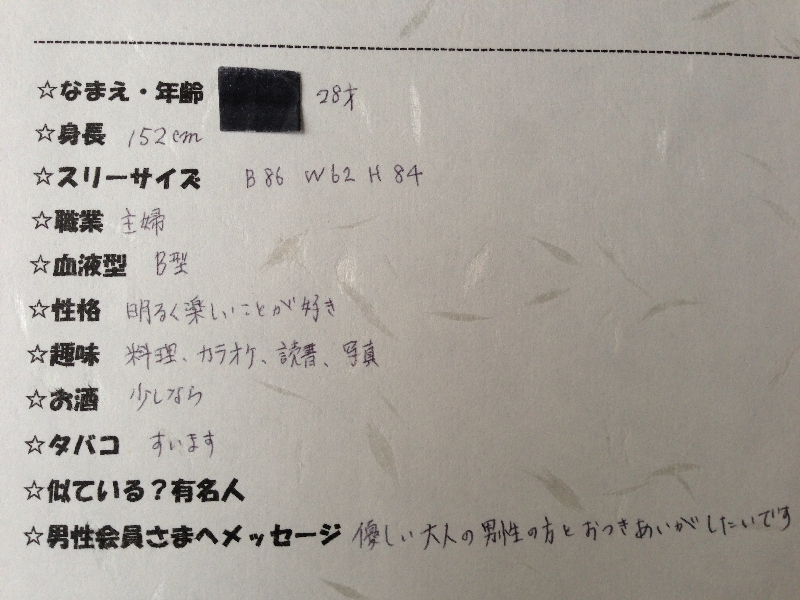 ☆なまえ・年齢 28才
☆身長 152cm
☆スリーサイズ B86 W62 H84
☆職業 主婦
☆血液型 B型
☆性格 明るく楽しいことが好き
☆趣味 料理、カラオケ、読書、写真
☆お酒 少しなら
☆タバコ すいます
☆似ている？有名人
☆男性会員さまへメッセージ 優しい大人の男性の方とおつきあいがしたいです